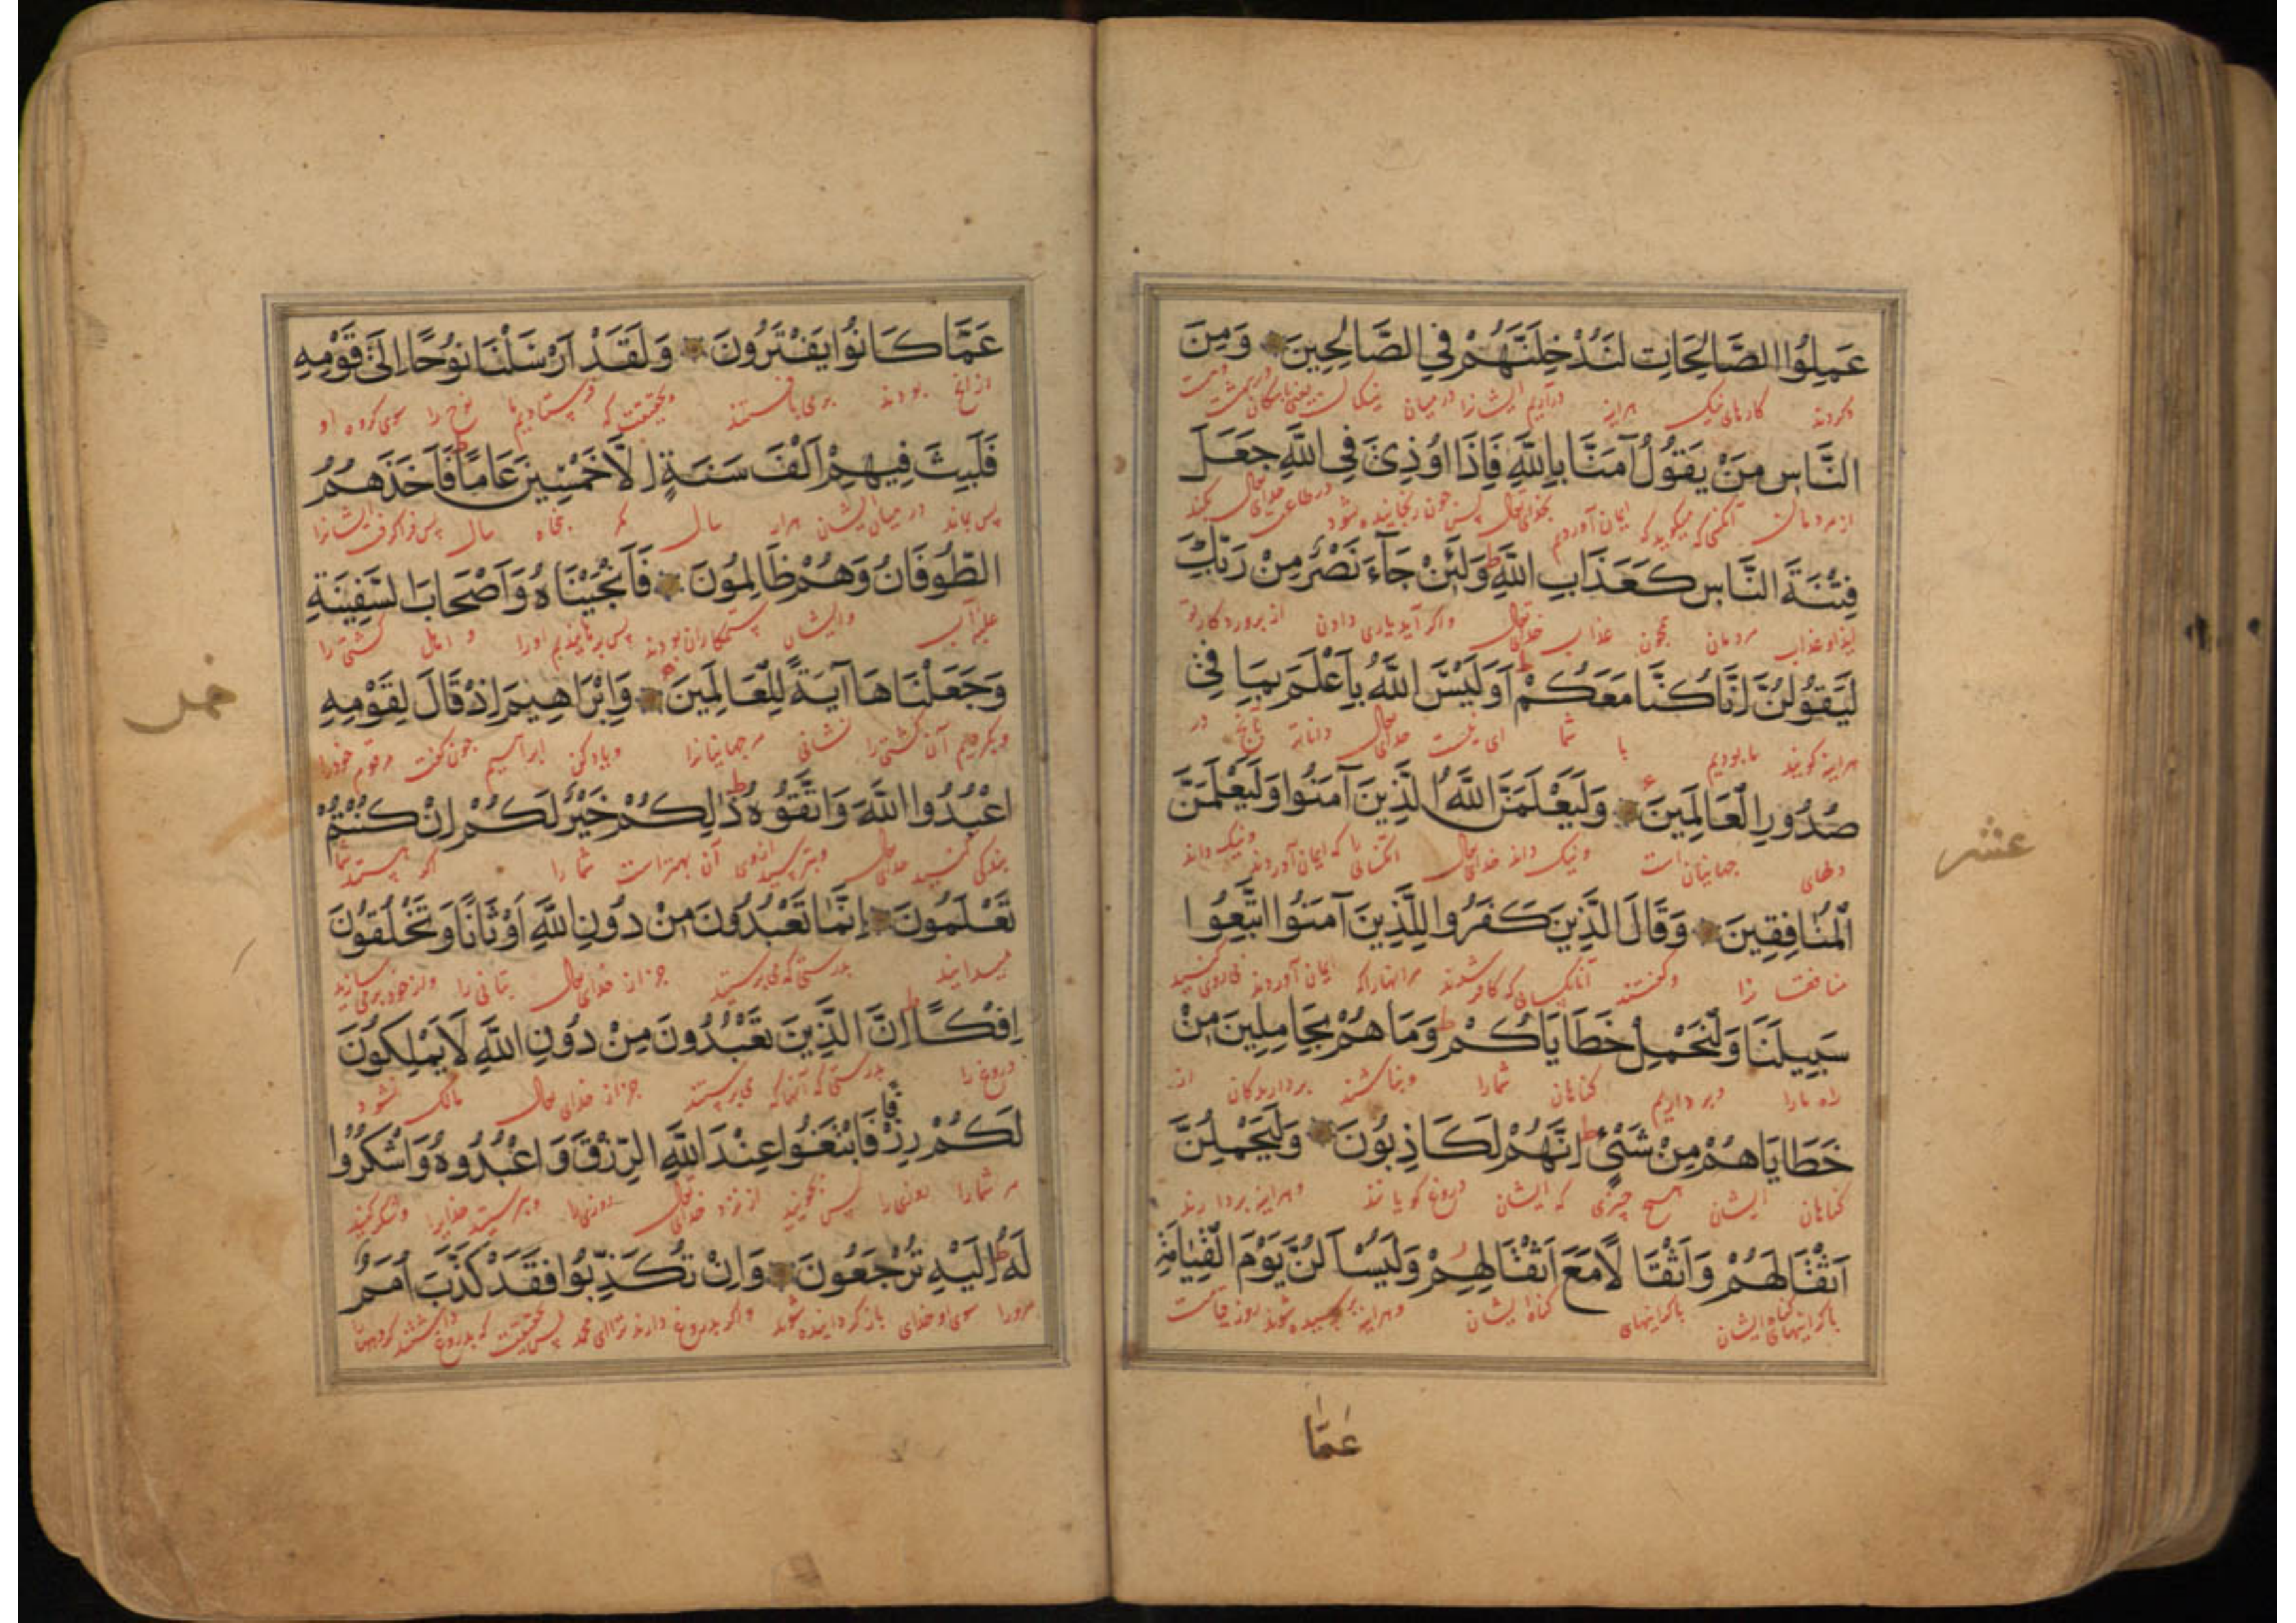 عَمِلُوا الصَّالِحَاتِ لَنُدْخِلَنَّهُمْ فِي الصَّالِحِينَ وَمِنَ
وکردند کارهای نیک هراینه درآریم ایشانرا درمیان نیکان
النَّاسِ مَنْ يَقُولُ آمَنَّا بِاللّٰهِ فَاِذَا اُوذِىَ فِي اللّٰهِ جَعَلَ
ازمردمان آنکس که میکوید که ایمان آوردیم بخدای تعالی پس چون رنجانیده شود
فِتْنَةَ النَّاسِ كَعَذَابِ اللّٰهِ ط وَلَئِنْ جَآءَ نَصْرٌ مِنْ رَبِّكَ
مردمان همچون عذاب خدای تعالی واکر آید یاری دادن از پروردکار تو
لَيَقُولُنَّ اِنَّا كُنَّا مَعَكُمْ ط اَوَلَيْسَ اللّٰهُ بِاَعْلَمَ بِمَا فِي
هراینه کویند ما بودیم با شما ای نیست خدای تعالی داناتر بآنچ در
صُدُورِ الْعَالَمِينَ وَلَيَعْلَمَنَّ اللّٰهُ الَّذِينَ آمَنُوا وَلَيَعْلَمَنَّ
دلهای جهانیان است ونیک داند خدای تعالی که ایمان آوردند ونیک داند
الْمُنَافِقِينَ وَقَالَ الَّذِينَ كَفَرُوا لِلَّذِينَ آمَنُوا اتَّبِعُوا
منافقا نرا وکفتند آنانکسانی که کافر شدند ایمان آوردند پی روی کنید
سَبِيلَنَا وَلْنَحْمِلْ خَطَايَاكُمْ ط وَمَا هُمْ بِحَامِلِينَ مِنْ
راه مارا وبرداریم کناهان شمارا ونباشند بردارندکان از
خَطَايَاهُمْ مِنْ شَىْءٍ ط اِنَّهُمْ لَكَاذِبُونَ وَلَيَحْمِلُنَّ
کناهان ایشان هیچ چیزی که ایشان دروغ کویانند وهراینه بردارند
اَثْقَالَهُمْ وَاَثْقَا لًا مَعَ اَثْقَالِهِمْ وَلَيُسْاَ لُنَّ يَوْمَ الْقِيَامَةِ
بارکرانیهای ایشان باکرانیهای کناه ایشان وهراینه پرسیده شوند روز قیامت
عَمَّا
عشر
عَمَّا كَانُوا يَفْتَرُونَ وَلَقَدْ اَرْسَلْنَا نُوحًا اِلَى قَوْمِهِ
ازانج بودند برمی بافتند وبحقیقت که فرستادیم ما نوح را سوی کروه او
فَلَبِثَ فِيهِمْ اَلْفَ سَنَةٍ اِلَّا خَمْسِينَ عَامًا ط فَاَخَذَهُمُ
پس بماند درمیان ایشان هزار سال مکر پنجاه سال پس فراکرفت ایشانرا
الطُّوفَانُ وَهُمْ ظَالِمُونَ فَاَنْجَيْنَاهُ وَاَصْحَابَ السَّفِينَةِ
وایشان ستمکاران بودند پس برهانیدیم اورا و اهل کشتی را
وَجَعَلْنَاهَا آيَةً لِلْعَالَمِينَ وَاِبْرَاهِيمَ اِذْ قَالَ لِقَوْمِهِ
وبکردیم آن کشتی را نشانی مر جهانیانرا ویاد کن ابراهیم چون کفت مر قوم خودرا
اعْبُدُوا اللّٰهَ وَاتَّقُوهُ ط ذٰلِكُمْ خَيْرٌ لَكُمْ اِنْ كُنْتُمْ
بندکی کنید خدای تعالی وبترسید ازوی آن بهترست شمارا اکر هستید شما
تَعْلَمُونَ اِنَّمَا تَعْبُدُونَ مِنْ دُونِ اللّٰهِ اَوْثَانًا وَتَخْلُقُونَ
میدانید بدرستی که می پرستید جز از خدای تعالی بتانی را
اِفْكًا ط اِنَّ الَّذِينَ تَعْبُدُونَ مِنْ دُونِ اللّٰهِ لَا يَمْلِكُونَ
دروغ را بدرستی که آنها که می پرستند جز از خدای تعالی مالک نشود
لَكُمْ رِزْقًا فَابْتَغُوا عِنْدَ اللّٰهِ الرِّزْقَ وَاعْبُدُوهُ وَاشْكُرُوا
مر شمارا روزی را پس بجویید از نزد خدای تعالی روزی را وبپرستید خدایرا وشکر کنید
لَهُ ط اِلَيْهِ تُرْجَعُونَ وَاِنْ تُكَذِّبُوا فَقَدْ كَذَّبَ اُمَمٌ
مرورا سوی او خدای بازکردانیده شوید واکر بدروغ دارند ترا ای محمد پس بحقیقت که بدروغ داشتند
خمس